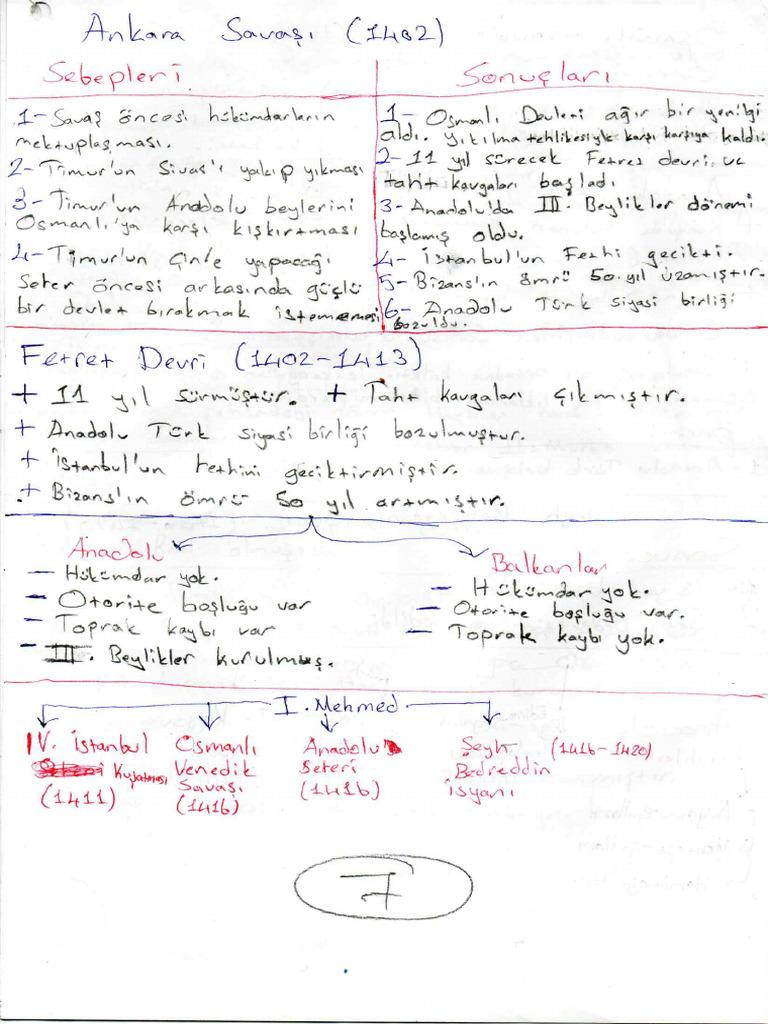 Ankara Savaşı (1402)
Sebepleri
1- Savaş öncesi hükümdarların
mektuplaşması.
2- Timur'un Sivas'ı yakıp yıkması
3- Timur'un Anadolu beylerini
Osmanlı'ya karşı kışkırtması
4- Timur'un Çin'e yapacağı
sefer öncesi arkasında güçlü
bir devlet bırakmak istememesi
Sonuçları
1- Osmanlı Devleti ağır bir yenilgi
aldı. yıkılma tehlikesiyle karşı karşıya kaldı.
2- 11 yıl sürecek Fetret devri ve
taht kavgaları başladı
3- Anadolu'da III. Beylikler dönemi
başlamış oldu.
4- İstanbul'un Fethi gecikti.
5- Bizans'ın ömrü 50 yıl uzamıştır.
6- Anadolu Türk siyasi birliği
bozuldu.
Fetret Devri (1402-1413)
+ 11 yıl sürmüştür. + Taht kavgaları çıkmıştır.
+ Anadolu Türk siyasi birliği bozulmuştur.
+ İstanbul'un fethini geciktirmiştir.
+ Bizans'ın ömrü 50 yıl artmıştır.
Anadolu
- Hükümdar yok.
- Otorite boşluğu var
- Toprak kaybı var
- III. Beylikler kurulmuş.
Balkanlar
- Hükümdar yok.
- Otorite boşluğu var.
- Toprak kaybı yok.
I. Mehmed
IV. İstanbul
Kuşatması
(1411)
Osmanlı
Venedik
Savaşı
(1416)
Anadolu
Seferi
(1416)
Şeyh (1416-1420)
Bedreddin
İsyanı
7